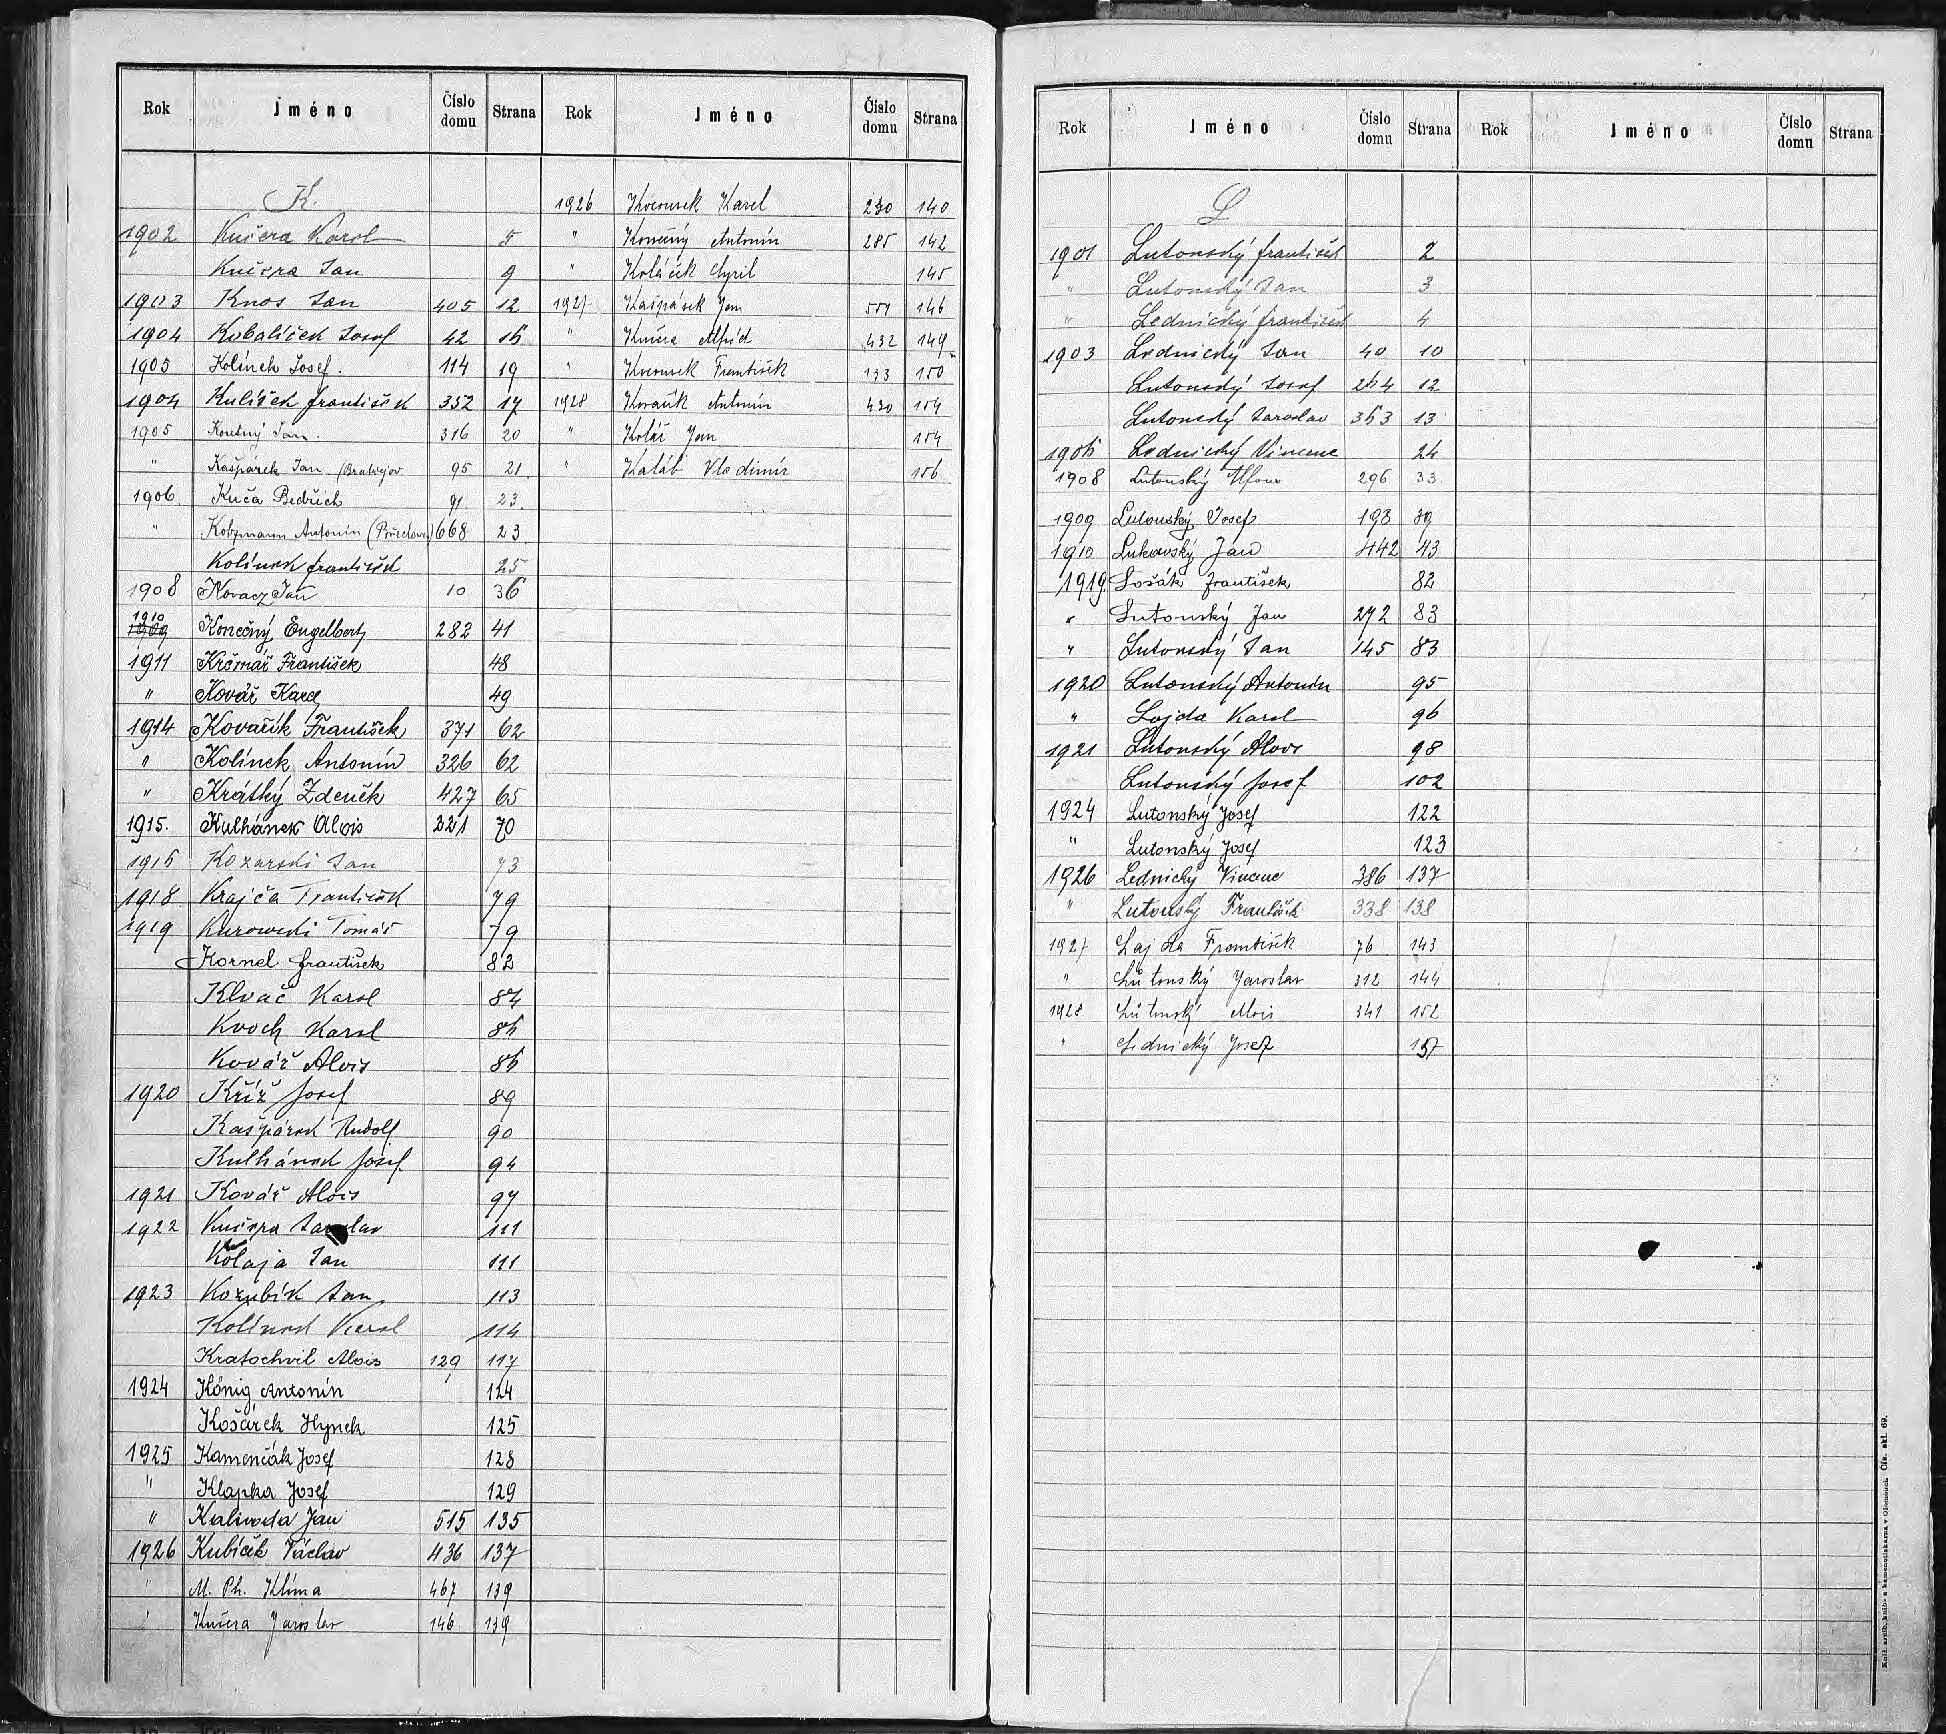 Rok Jméno Číslo domu Strana
K.
1902 Kučera Karel 5
Kučera Jan 9
1903 Knos Jan 405 12
1904 Kobalíček Josef 42 16
1905 Kolínek Josef. 114 19
1904 Kulíšek František 352 17
1905 Koutný Jan. 316 20
" Kašpárek Jan (Bratřejov 95 21
1906. Kuča Bedřich 91 23.
" Antonín 668 23
Kolínek František 25
1908 Kovacz Jan 10 36
1910 1909 Konečný Engelbert 282 41
1911 Krčmář František 48
" Kovář Karel 49
1914 Kovařík František 371 62
" Kolínek Antonín 326 62
" Krátký Zdeněk 427 65
1915. Kulhánek Alois 221 70
1916 Kozarski Jan 73
1918 Krajča František 79
1919 Kurowski Tomáš 79
Kornel František 82
Klvač Karel 84
Kvoch Karel 86
Kovář Alois 86
1920 Kříž Josef 89
Kašpárek Rudolf 90
Kulhánek Josef 94
1921 Kovář Alois 97
1922 Kučera Jaroslav 111
Kolaja Jan 111
1923 Kozubík Jan 113
Kolínek Karel 114
Kratochvil Alois 129 117
1924 König Antonín 124
Košárek Hynek 125
1925 Kamenčák Josef 128
" Klapka Josef 129
" Kalivoda Jan 515 135
1926 Kubíček Václav 436 137
" M. Ph. Klíma 467 139
" Kučera Jaroslav 146 139
Rok Jméno Číslo domu Strana
1926 Karel 230 140
" Konečný Antonín 285 142
" Koláček Cyril 145
1927 Kašpárek Jan 146
" Kučera Alfréd 432 149
" František 133 150
1928 Kovařík Antonín 430 154
" Kolář Jan 154
" Kaláb Vladimír 156
Rok Jméno Číslo domu Strana
L
1901 Lutonský František 2
" Lutonský Jan 3
" Lednický František 4
1903 Lednický Jan 40 10
Lutonský Josef 264 12
Lutonský Jaroslav 353 13
1906 Lednický Vincenc 24
1908 Lutonský Alfons 296 33
1909 Lutonský Josef 193 39
1910 Lukovský Jan 442 43
1919. Lošák František 82
" Lutonský Jan 272 83
" Lutonský Jan 145 83
1920 Lutonský Antonín 95
" Lajda Karel 96
1921 Lutonský Alois 98
Lutonský Josef 102
1924 Lutonský Josef 122
" Lutonský Josef 123
1926 Lednický Vincenc 386 137
" Lutonský František 338 138
1927 Lajda František 76 143
" Lůtonský Jaroslav 312 144
1928 Lůtonský Alois 341 152
" Lednický Josef 157
Rok Jméno Číslo domu Strana